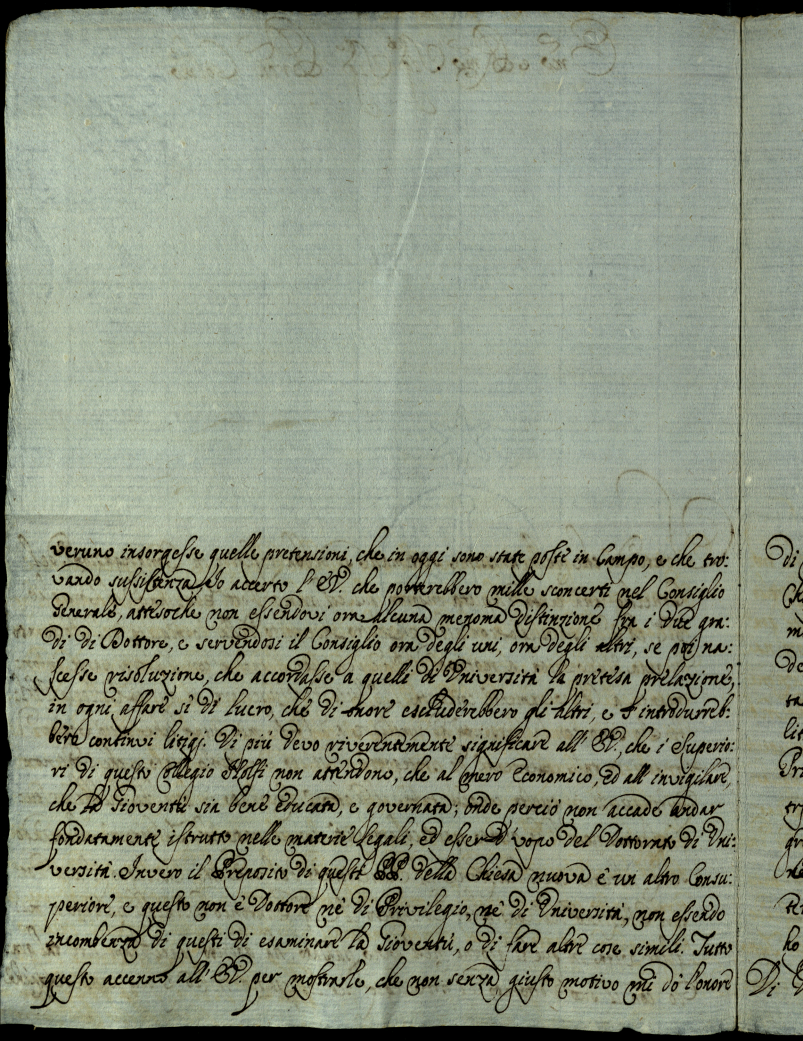 veruno insorgesse quelle pretensioni, che in oggi sono state poste in Campo, e che tro:
vando sussistenza Io accerto l'EV. che porterebbero mille sconcerti nel Consiglio
Generale, attesoche non essendovi ora alcuna menoma distinzione fra i due gra:
di di Dottore, e servendosi il Consiglio ora degli uni, ora degli altri, se poi na:
scesse risoluzione, che accordasse a quelli di Università la pretesa prelazione,
in ogni affare sì di lucro, che di onore escluderebbero gli altri, e s'introdurreb:
bero continvi litigj. Di più devo riverentemente significare all'EV., che i Superio:
ri di questo Collegio non attendono, che al mero Economico, ed all'invigilare,
che la Gioventù sia bene Educata, e governata; onde perciò non accade andar
fondatamente istrutto nelle materie Legali, ed esser d'vopo del Dottorato di Uni:
versità. Invero il Preposito di questi PP. della Chiesa nuova è un altro Consu:
periore, e questo non è Dottore nè di Privilegio, nè di Università, non essendo
incombenza di questi di esaminare la Gioventù, o di fare altre cose simili. Tutto
questo accenno all'EV. per mostrarle, che non senza giusto motivo mi dò l'onore